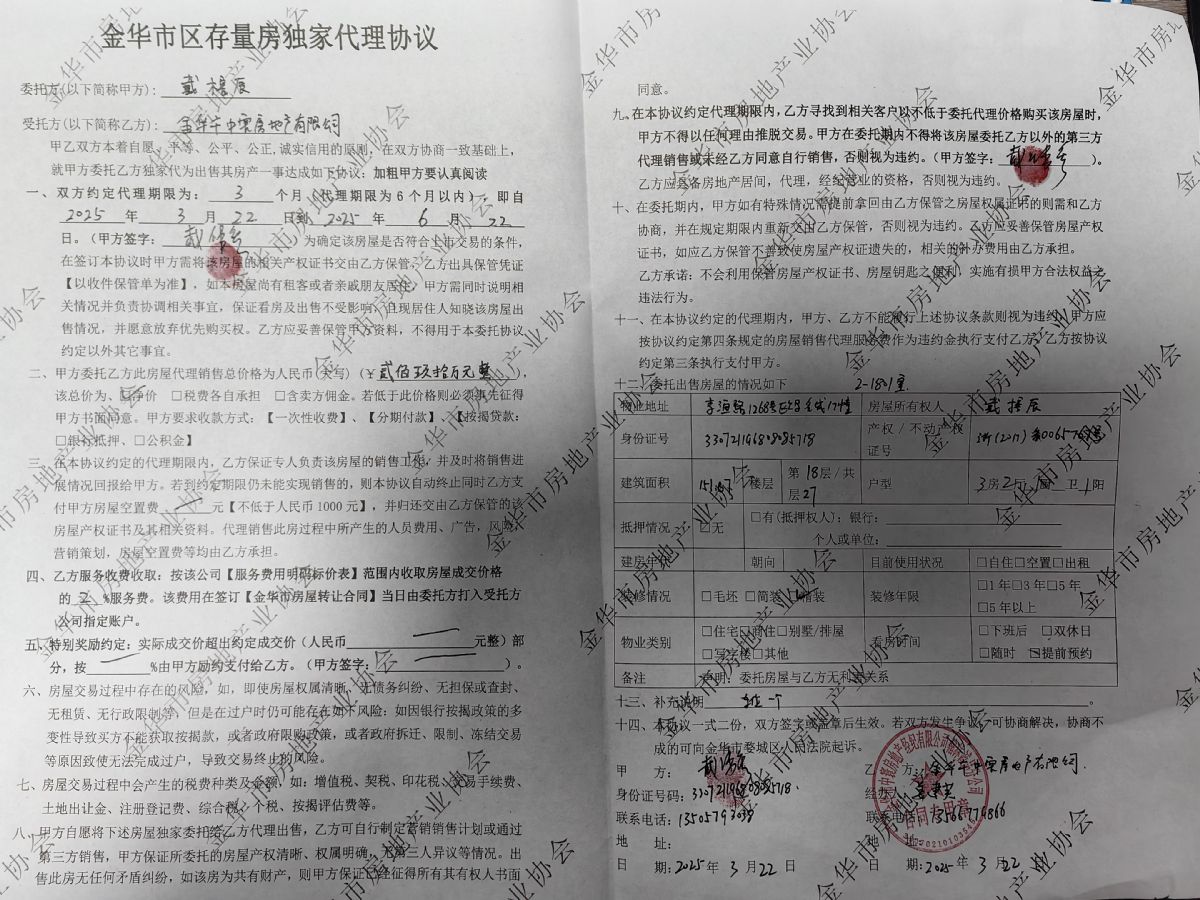 金华市区存量房独家代理协议
委托方(以下简称甲方)：
受托方(以下简称乙方)：金华 中 房地产有限公司
甲乙双方本着自愿、平等、公平、公正,诚实信用的原则，在双方协商一致基础上，
就甲方委托乙方独家代为出售其房产一事达成如下协议：加粗甲方要认真阅读
一、双方约定代理期限为：3 个月（代理期限为6个月以内） 即自
2025 年 3 月 22 日到 2025 年 6 月 22
日。（甲方签字： ）为确定该房屋是否符合上市交易的条件，
在签订本协议时甲方需将该房屋的相关产权证书交由乙方保管，乙方出具保管凭证
【以收件保管单为准】，如本房屋尚有租客或者亲戚朋友居住，甲方需同时说明相
关情况并负责协调相关事宜，保证看房及出售不受影响，且现居住人知晓该房屋出
售情况，并愿意放弃优先购买权。乙方应妥善保管甲方资料，不得用于本委托协议
约定以外其它事宜。
二、甲方委托乙方此房屋代理销售总价格为人民币(大写)(￥贰佰玖拾万元整)，
该总价为、□净价 □税费各自承担 □含卖方佣金。若低于此价格则必须事先征得
甲方书面同意。甲方要求收款方式：【一次性收费】、【分期付款】、【按揭贷款：
□银行抵押、□公积金】
三、在本协议约定的代理期限内，乙方保证专人负责该房屋的销售工作，并及时将销售进
展情况回报给甲方。若到约定期限仍未能实现销售的，则本协议自动终止同时乙方支
付甲方房屋空置费 元【不低于人民币1000元】，并归还交由乙方保管的该
房屋产权证书及其相关资料。代理销售此房过程中所产生的人员费用、广告，风险、
营销策划，房屋空置费等均由乙方承担。
四、乙方服务收费收取：按该公司【服务费用明码标价表】范围内收取房屋成交价格
的 2 %服务费。该费用在签订【金华市房屋转让合同】当日由委托方打入受托方
公司指定账户。
五、特别奖励约定：实际成交价超出约定成交价（人民币 元整）部
分，按 %由甲方励约支付给乙方。（甲方签字： ）。
六、房屋交易过程中存在的风险，如，即使房屋权属清晰、无债务纠纷、无担保或查封、
无租赁、无行政限制等，但是在过户时仍可能存在如下风险：如因银行按揭政策的多
变性导致买方不能获取按揭款，或者政府限购政策，或者政府拆迁、限制、冻结交易
等原因致使无法完成过户，导致交易终止的风险。
七、房屋交易过程中会产生的税费种类及金额，如：增值税、契税、印花税、交易手续费、
土地出让金、注册登记费、综合税、个税、按揭评估费等。
八、甲方自愿将下述房屋独家委托给乙方代理出售，乙方可自行制定营销销售计划或通过
第三方销售，甲方保证所委托的房屋产权清晰、权属明确，无第三人异议等情况。出
售此房无任何矛盾纠纷，如该房为共有财产，则甲方保证已经征得所有其有权人书面
同意。
九、在本协议约定代理期限内，乙方寻找到相关客户以不低于委托代理价格购买该房屋时，
甲方不得以任何理由推脱交易。甲方在委托期内不得将该房屋委托乙方以外的第三方
代理销售或未经乙方同意自行销售，否则视为违约。（甲方签字： ）。
乙方应具备房地产居间，代理，经纪营业的资格，否则视为违约。
十、在委托期内，甲方如有特殊情况需提前拿回由乙方保管之房屋权属证书的则需和乙方
协商，并在规定期限内重新交由乙方保管，否则视为违约。乙方应妥善保管房屋产权
证书，如应乙方保管不善致使房屋产权证遗失的，相关的补办费用由乙方承担。
乙方承诺：不会利用保管房屋产权证书、房屋钥匙之便利，实施有损甲方合法权益之
违法行为。
十一、在本协议约定的代理期内，甲方、乙方不能履行上述协议条款则视为违约，甲方应
按协议约定第四条规定的房屋销售代理服务费作为违约金执行支付乙方，乙方按协议
约定第三条执行支付甲方。
十二、委托出售房屋的情况如下 2-1801室
物业地址 李渔路1268号 17幢 房屋所有权人
身份证号 330721196808085718 产权/不动产权证号
建筑面积 楼层 第18层/共27层 户型 3房2厅 卫1阳
抵押情况 □无 □有(抵押权人)：银行：
个人或单位：
建房年代 朝向 目前使用状况 □自住□空置□出租
装修情况 □毛坯 □简装 □精装 装修年限 □1年□3年□5年
□5年以上
物业类别 □住宅□商住□别墅/排屋 看房时间 □下班后 □双休日
□写字楼□其他 □随时 ☑提前预约
备注 声明：委托房屋与乙方无利害关系
十三、补充说明 车位一个
十四、本协议一式二份，双方签字或盖章后生效。若双方发生争议，可协商解决，协商不
成的可向金华市婺城区人民法院起诉。
甲 方： 乙 方：金华 中 房地产有限公司
身份证号码：330721196808085718 经办人：
联系电话： 联系电话：
地 址： 地 址：
日 期：2025年3月22日 日 期：2025年3月22日
合同专用章
金华市房地产业协会